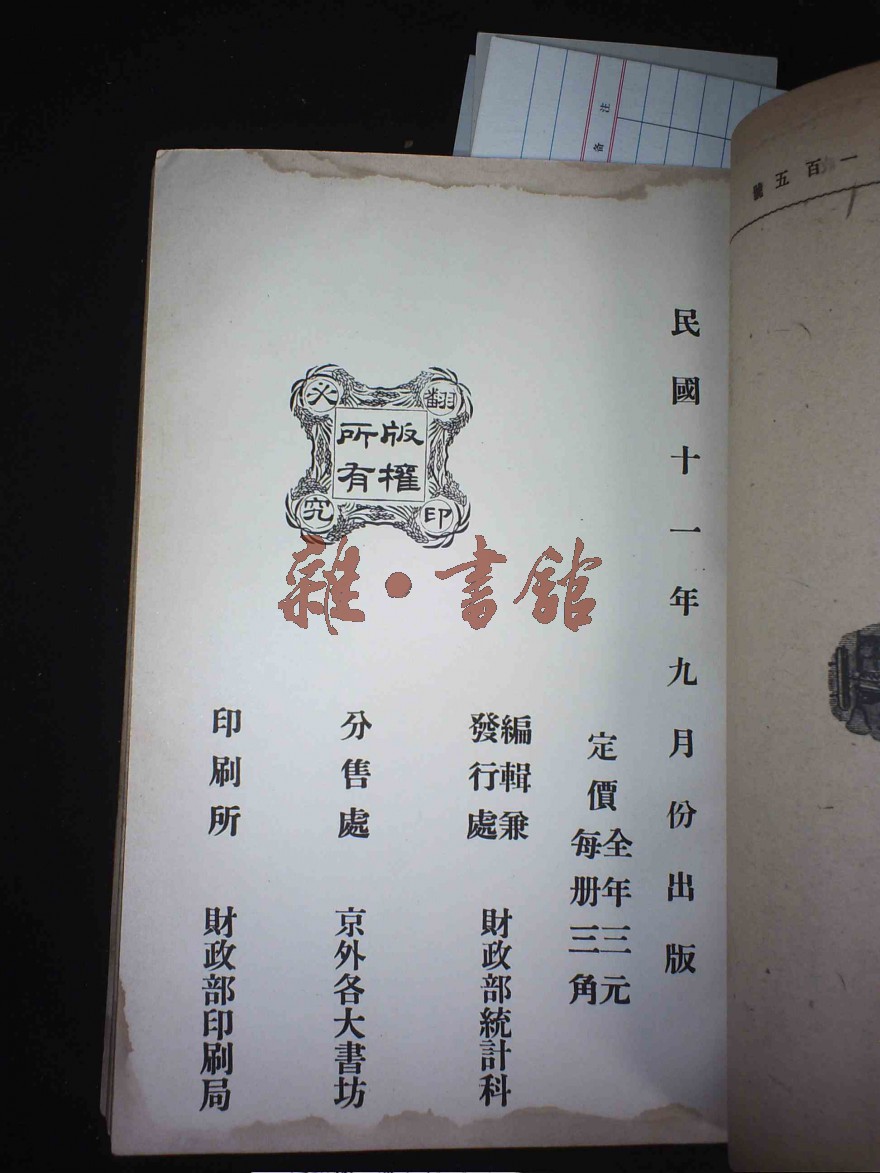 備注
一百五號
民國十一年九月份出版
定價
全年三元
每册三角
編輯兼
發行處
財政部統計科
分售處 京外各大書坊
印刷所 財政部印刷局
版權
所有
翻印
必究
雜·書館